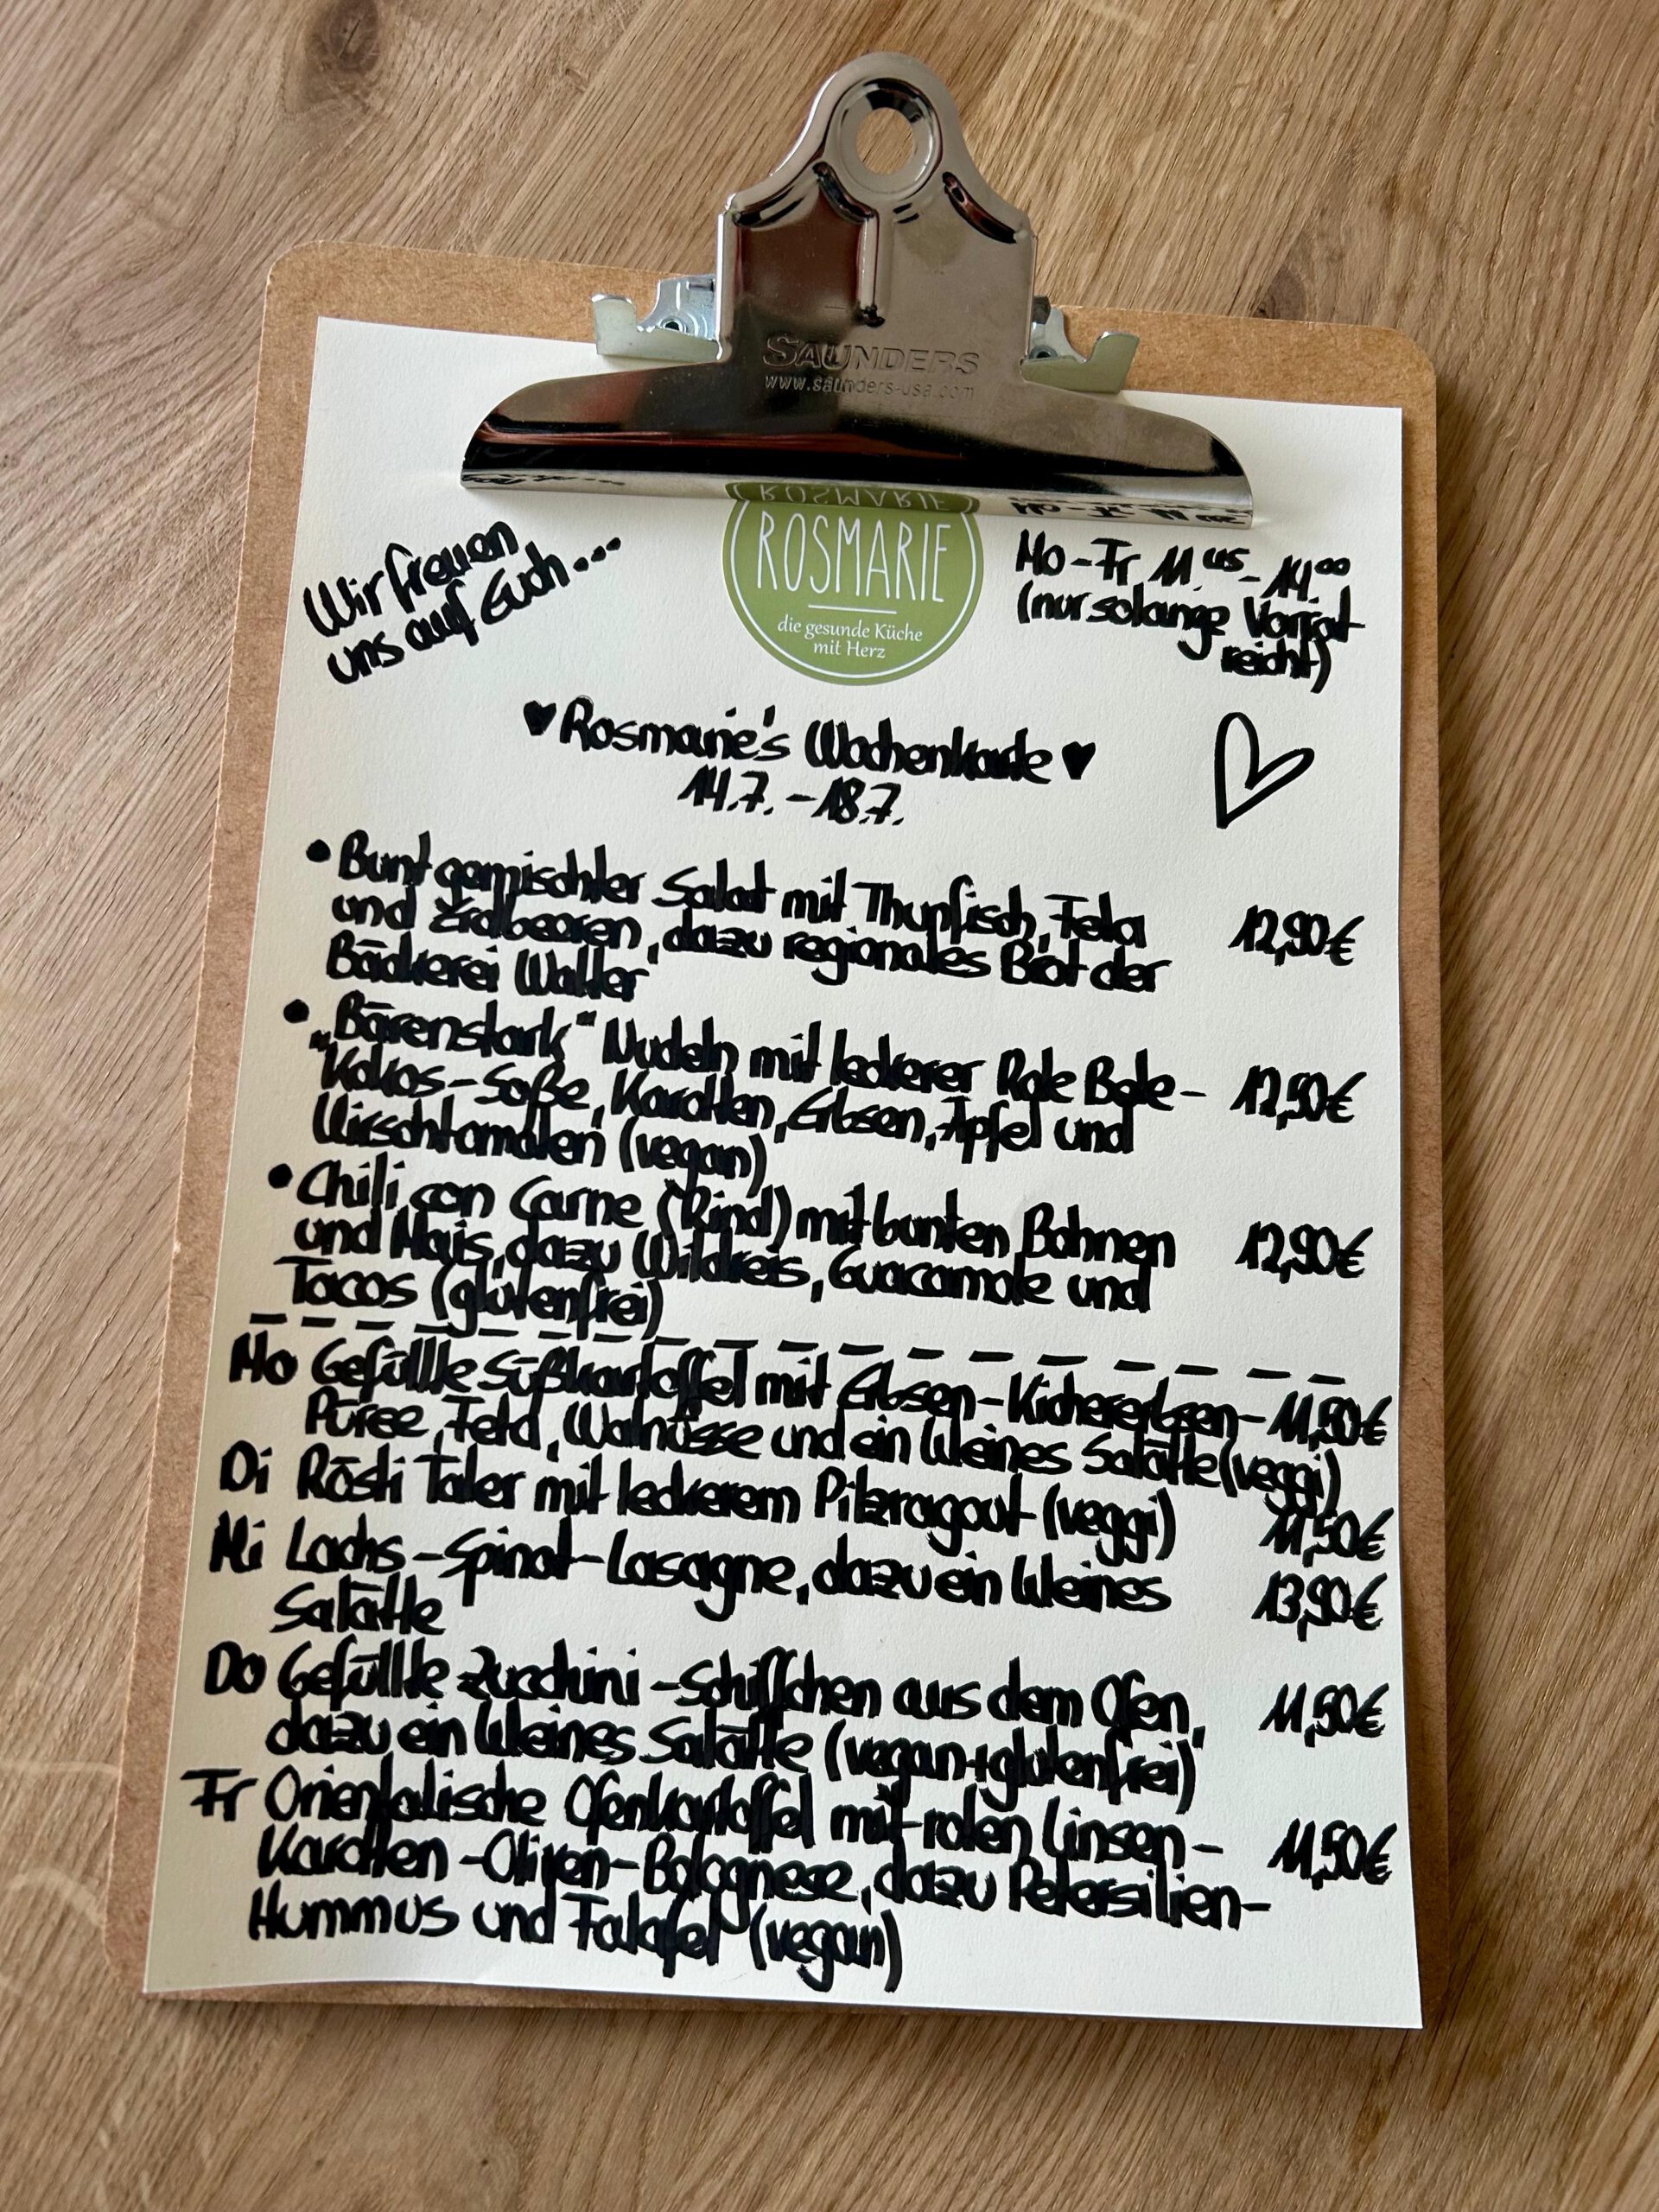 SAUNDERS
www.saunders-usa.com
Wir freuen
uns auf Euch...
ROSMARIE
die gesunde Küche
mit Herz
Mo-Fr 11.45-14.00
(nur solange Vorrat
reicht)
♥ Rosmarie's Wochenkarte ♥
14.7. - 18.7.
• Bunt gemischter Salat mit Thunfisch, Feta
und Erdbeeren, dazu regionales Brot der 12,90€
Bäckerei Walter
• "Bärenstark" Nudeln mit leckerer Rote Bete-
Kokos-Soße, Karotten, Erbsen, Apfel und 12,50€
Kirschtomaten (vegan)
• Chili con Carne (Rind) mit bunten Bohnen
und Mais, dazu Wildreis, Guacamole und 12,90€
Tacos (glutenfrei)
Mo Gefüllte Süßkartoffel mit Erbsen-Kichererbsen- 11,50€
Püree, Feta, Walnüsse und ein kleines Salätle (veggi)
Di Rösti Taler mit leckerem Pilzragout (veggi) 11,50€
Mi Lachs-Spinat-Lasagne, dazu ein kleines 13,90€
Salätle
Do Gefüllte Zucchini-Schiffchen aus dem Ofen, 11,50€
dazu ein kleines Salätle (vegan+glutenfrei)
Fr Orientalische Ofenkartoffel mit roten Linsen- 11,50€
Karotten-Oliven-Bolognese, dazu Petersilien-
Hummus und Falafel (vegan)